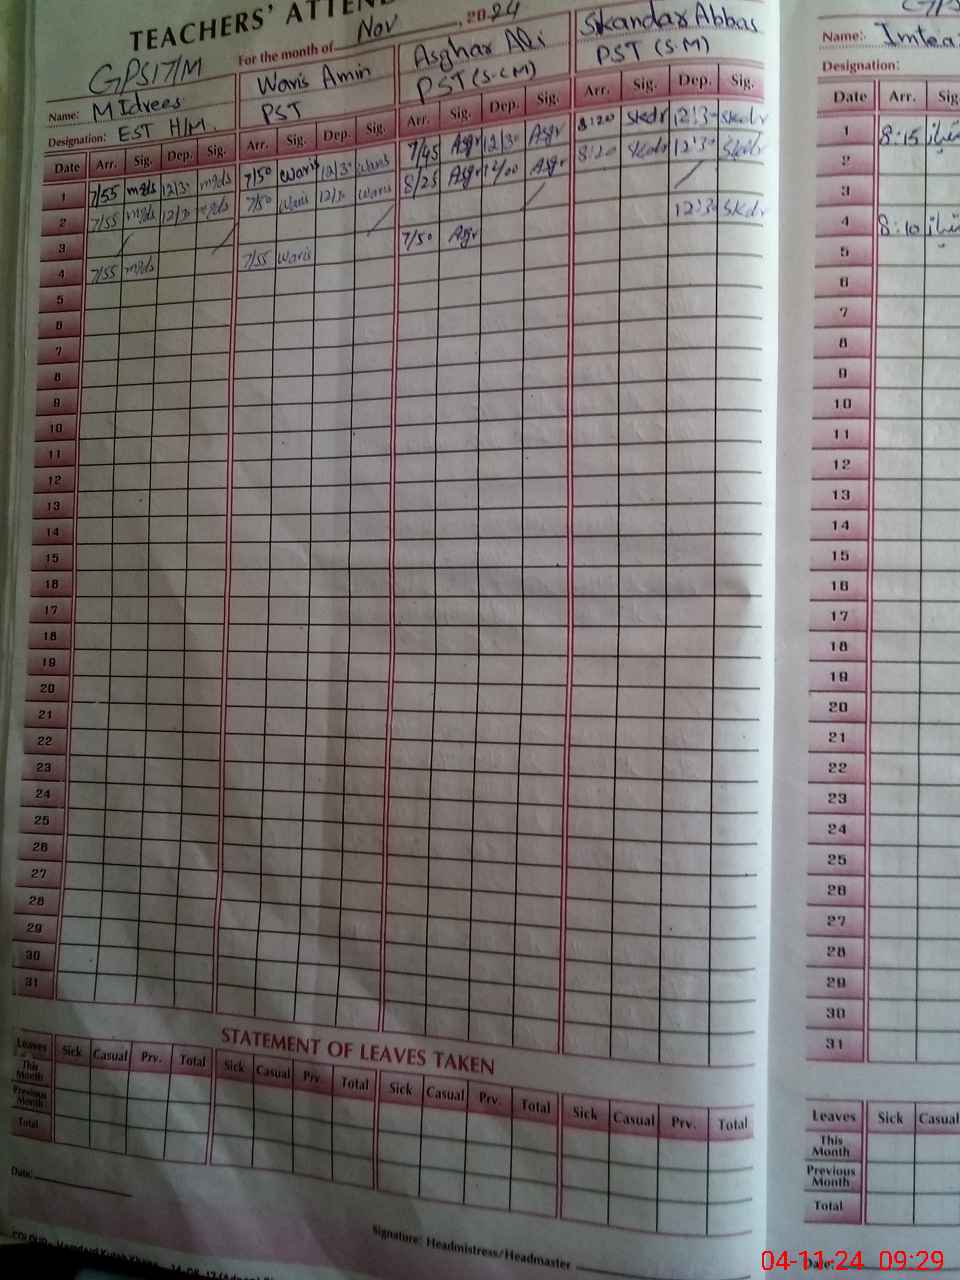 TEACHERS' ATTEN
For the month of Nov , 2024
GPS 17/M
Name: M Idrees
Designation: EST H/M.
Waris Amin
PST
Asghar Ali
PST (S-M)
Skandar Abbas
PST (S-M)
Name:. Imtea
Designation:
Date Arr. Sig. Dep. Sig. Arr. Sig. Dep. Sig. Arr. Sig. Dep. Sig. Arr. Sig. Dep. Sig.
1 7/55 mids 12/30 mids 7/50 waris 12/30 waris 7/45 Asgr 12/30 Asgr 8:20 Skdr 12:30 Skdr
2 7/55 mids 12/30 mids 7/50 waris 12/30 waris 8/25 Asgr 12/00 Asgr 8:20 Skdr 12:30 Skdr
3
4 7/55 mids 7/55 waris 7/50 Asgr 12:30 Skdr
5
6
7
8
9
10
11
12
13
14
15
16
17
18
19
20
21
22
23
24
25
26
27
28
29
30
31
Date Arr.
1 8:15
2
3
4 8:10
5
6
7
8
9
10
11
12
13
14
15
16
17
18
19
20
21
22
23
24
25
26
27
28
29
30
31
STATEMENT OF LEAVES TAKEN
Leaves Sick Casual Prv. Total Sick Casual Prv. Total Sick Casual Prv. Total Sick Casual Prv. Total
This Month
Previous Month
Total
Leaves Sick Casual
This Month
Previous Month
Total
Date:
Signature: Headmistress/Headmaster
Date:
04-11-24 09:29